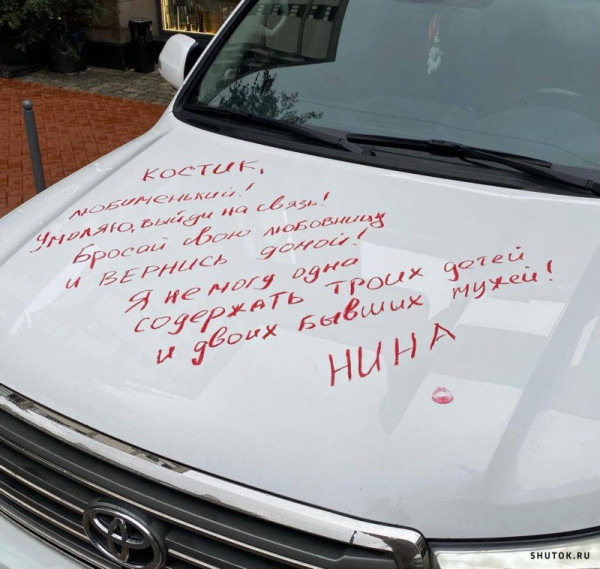 КОСТИК,
любименький!
Умоляю, выйди на связь!
Бросай свою любовницу
и ВЕРНИСЬ домой!
Я не могу одна
содержать троих детей
и двоих бывших мужей!
НИНА
SHUTOK.RU